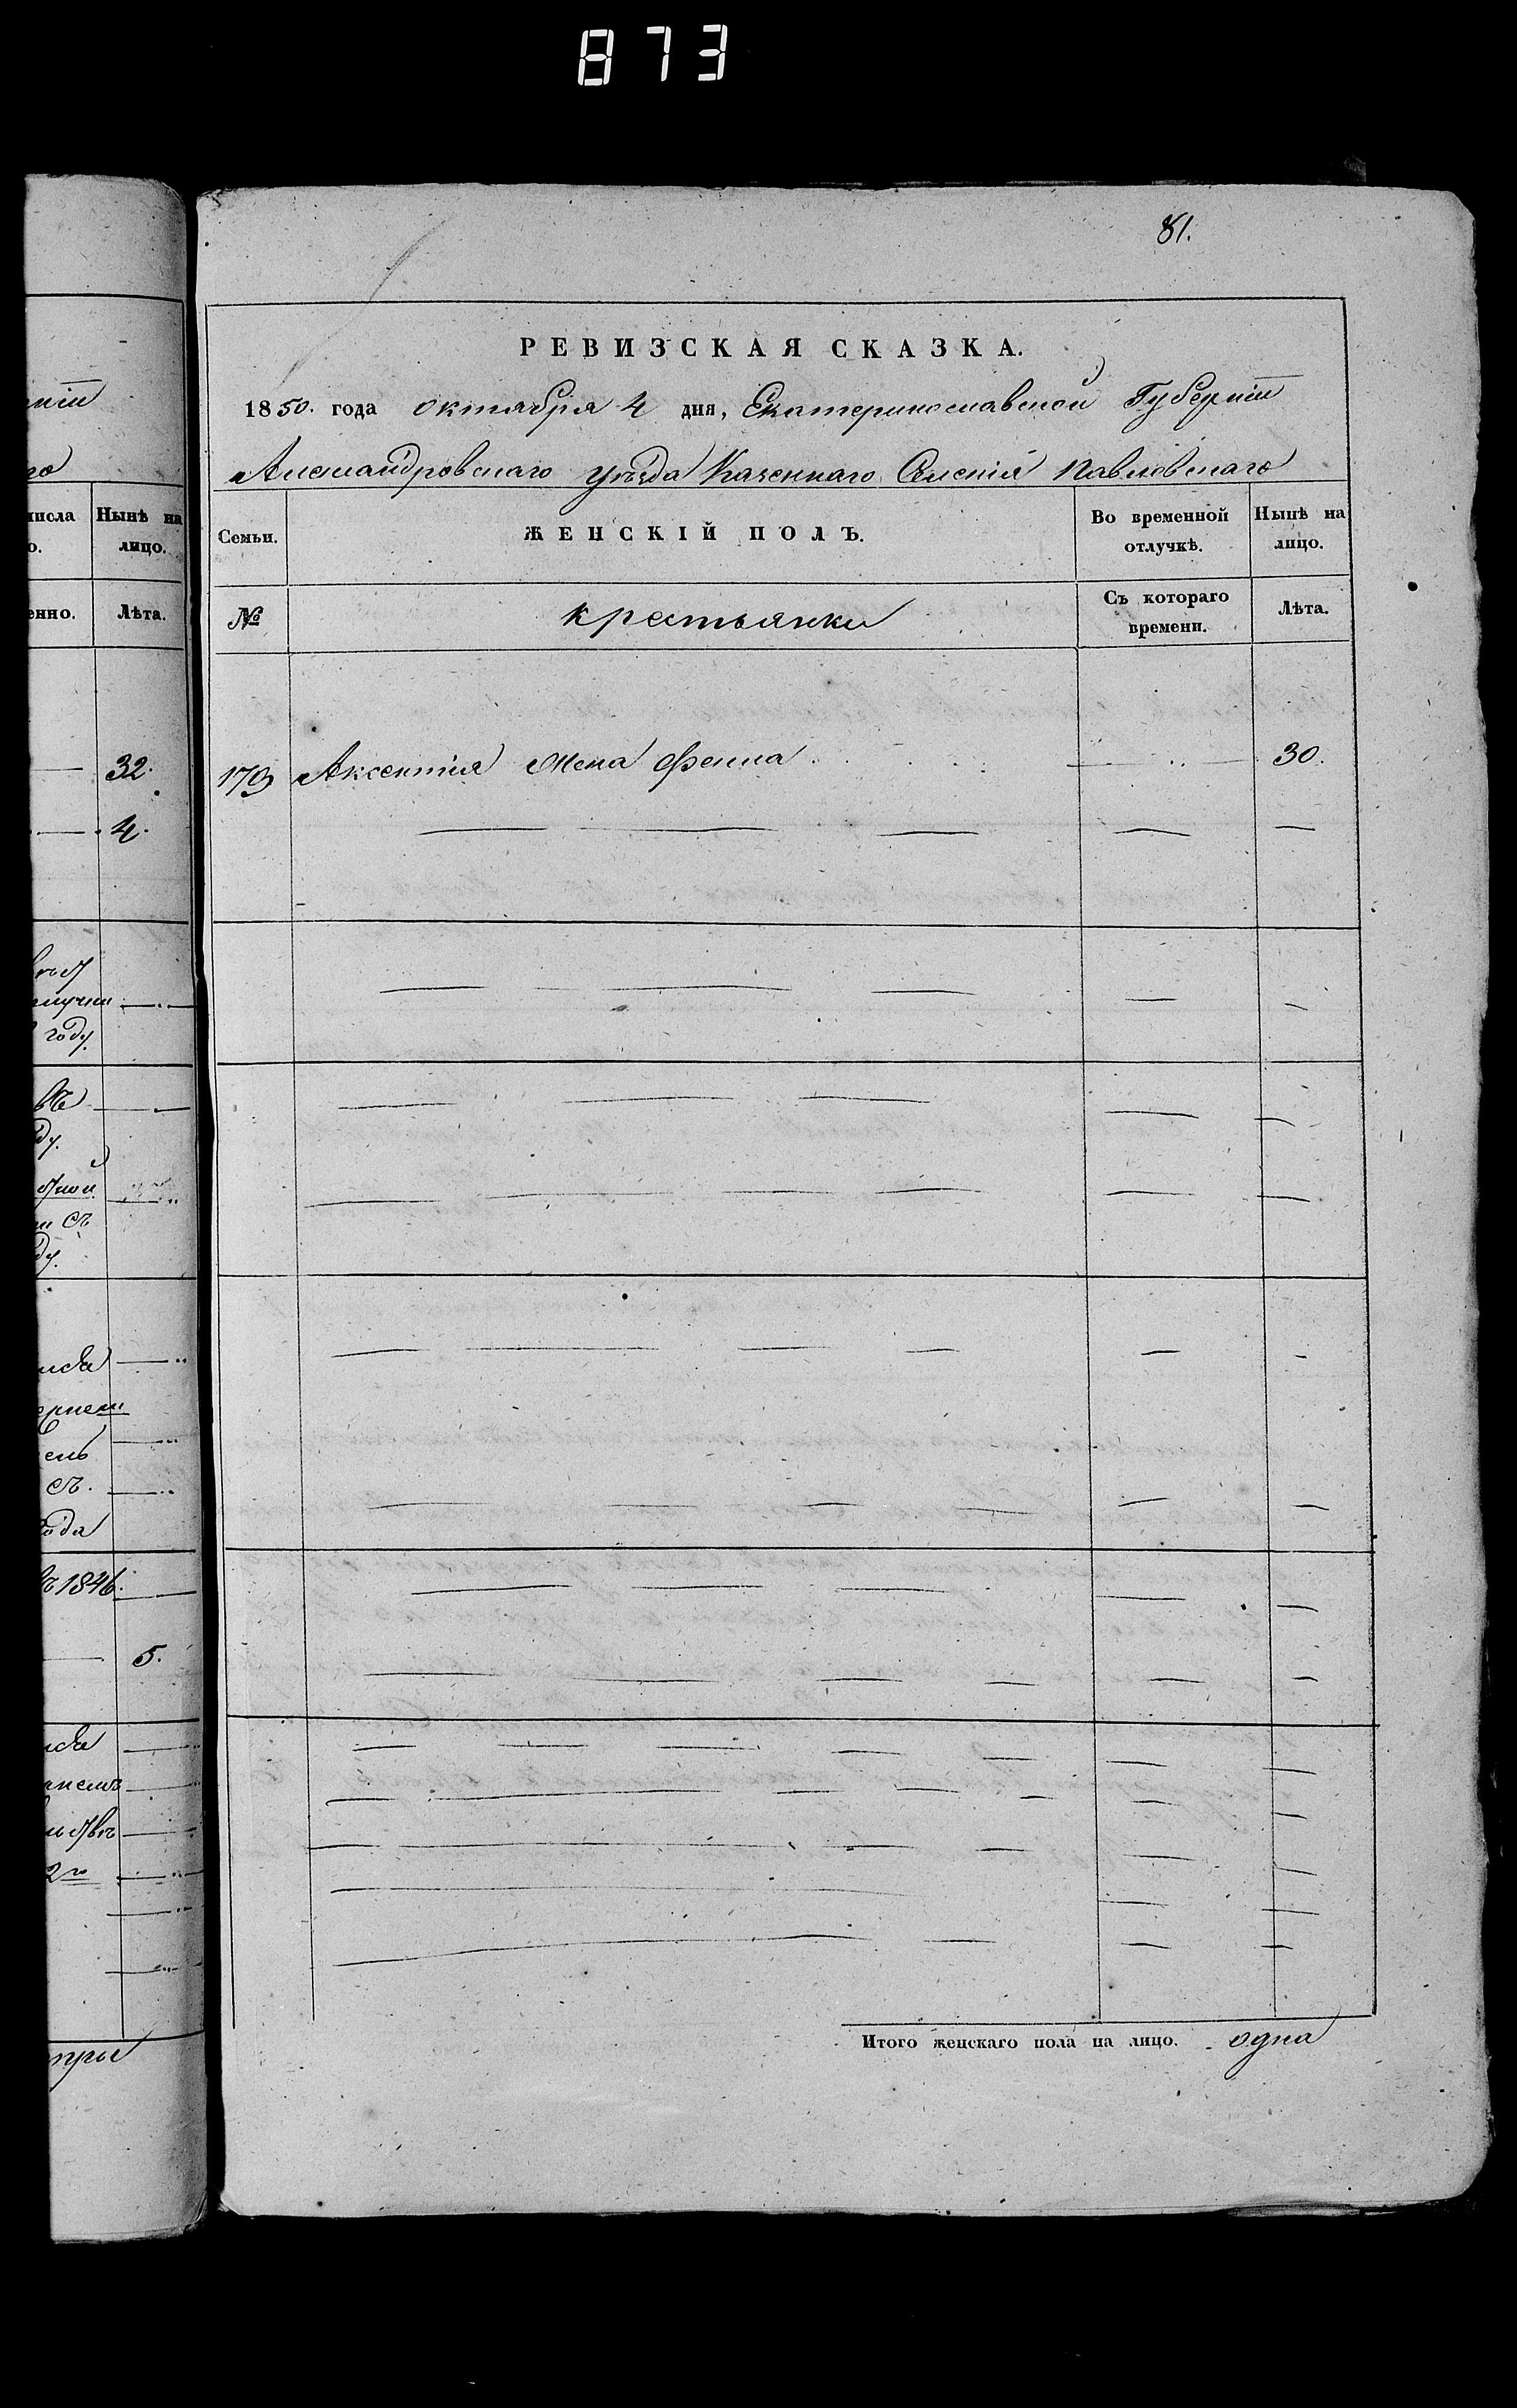 873
81.
РЕВИЗСКАЯ СКАЗКА.
1850. года октября 4 дня, Екатеринославской Губерніи
Александровскаго уѣзда Казеннаго Селенія Павловскаго
Семьи. ЖЕНСКІЙ ПОЛЪ. Во временной отлучкѣ. Нынѣ на лицо.
№ крестьянки Съ котораго времени. Лѣта.
Аксентія жена Фекла 30.
Итого женскаго пола на лицо. одна
Нынѣ на
лицо.
Лѣта.
32.
4.
году
съ
съ.
года
1846.
5.